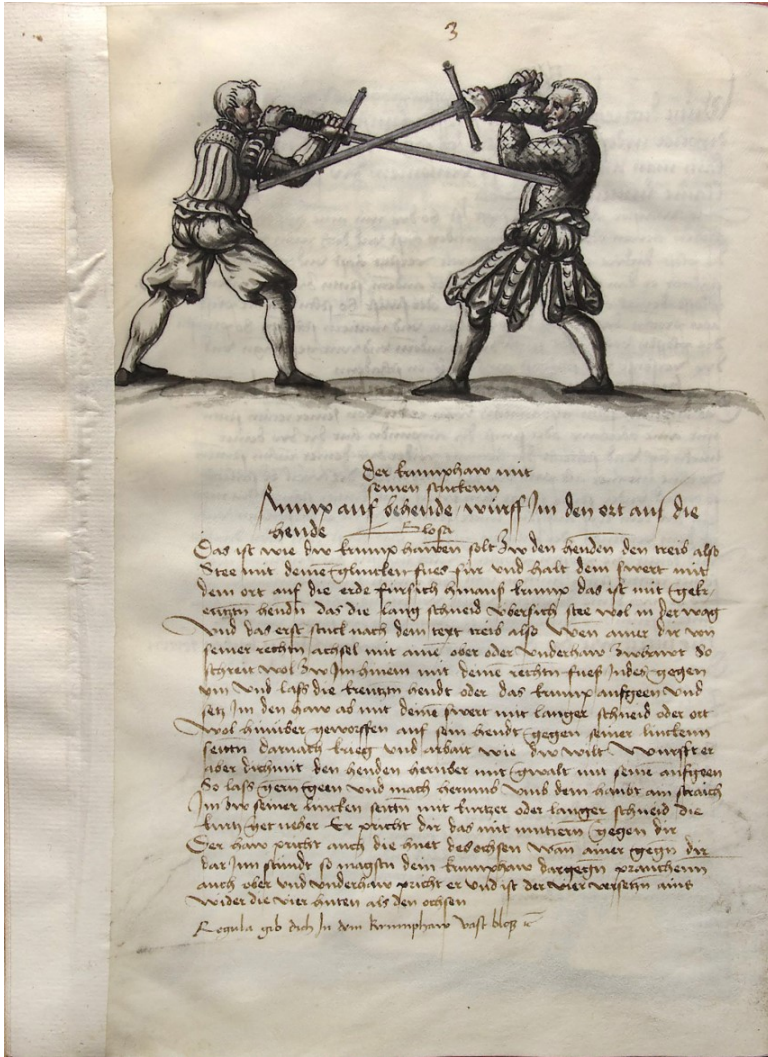 3
Der krumphaw mit
seinen stucken
Krump auf behende, wirff Im den ort auf die
hende Glosa
Das ist wie dw krump hawen solt Zw den henden den treib also
Stee mit deinē glincken fues für und halt dein swert mit
dem ort auf die erde fürsich hinauf krump das ist mit gekr
eutztn hendn das die lang schneid ubersich stee wol in der wag
Und das erst stuck nach dem text treib also Wen ainer dir von
seiner rechtn achsel mit ainē ober oder underhaw Zwhawt So
schreit wol Zw Im hinein mit deinē rechtn fuess Indes gegen
Im und lass die kreutztn hendt oder das krump aufgeen und
setz Im den haw ab mit deinē swert mit langer schneid oder ort
Wol hinüber geworffen auf sein hendt gegen seiner linckenn
seittn darnach krieg und arbait wie dw wilt Wurfft er
aber dich mit den henden herüber mit gwalt mit seinē aufgeen
So lass gern geen und mach herumb Umb dein haubt ain straich
Im Zw seiner lincken seittn mit kurtzer oder langer schneid die
kurtz get neher Er pricht dir das mit mutiern gegen dir
Der haw pricht auch die huet des ochsen wan ainer gegn dir
dar Inn stündt so magstu dein krumphaw dargegn prauchenn
auch ober und underhaw pricht er und ist der vier versetzn ains
wider die vier huten als den ochsen
Regula gib dich In dem krumphaw vast blosz